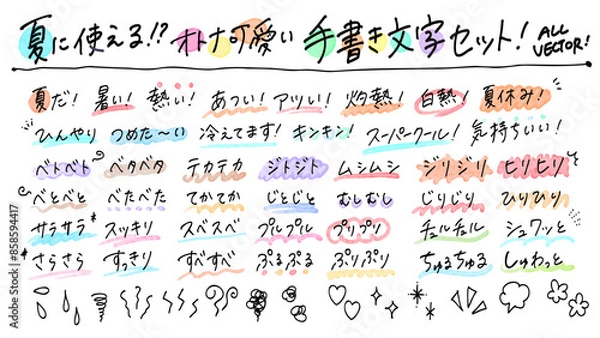 夏に使える!? オトナ可愛い 手書き文字セット! ALL VECTOR!
夏だ! 暑い! 熱い! あつい! アツい! 灼熱! 白熱! 夏休み!
ひんやり つめた〜い 冷えてます! キンキン! スーパークール! 気持ちいい!
ベトベト ベタベタ テカテカ ジトジト ムシムシ ジリジリ ヒリヒリ
べとべと べたべた てかてか じとじと むしむし じりじり ひりひり
サラサラ スッキリ スベスベ プルプル プリプリ チュルチュル シュワッと
さらさら すっきり すべすべ ぷるぷる ぷりぷり ちゅるちゅる しゅわっと
Adobe Stock | #858594417